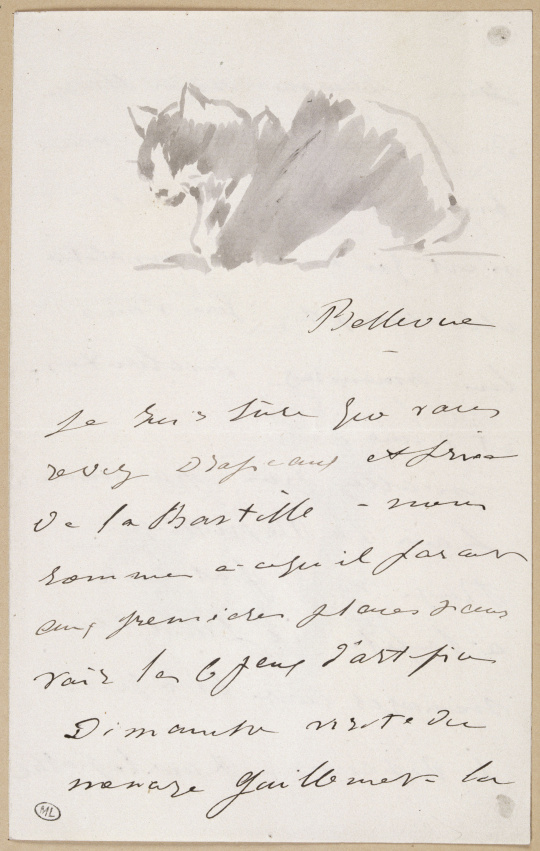 Bellevue
Je suis sûre que vous
rêvez drapeaux et prise
de la Bastille - nous
sommes à ce qu'il parait
aux premieres places pour
voir les 6 feux d'artifice
Dimanche visite du
menage Guillemet - la
ML